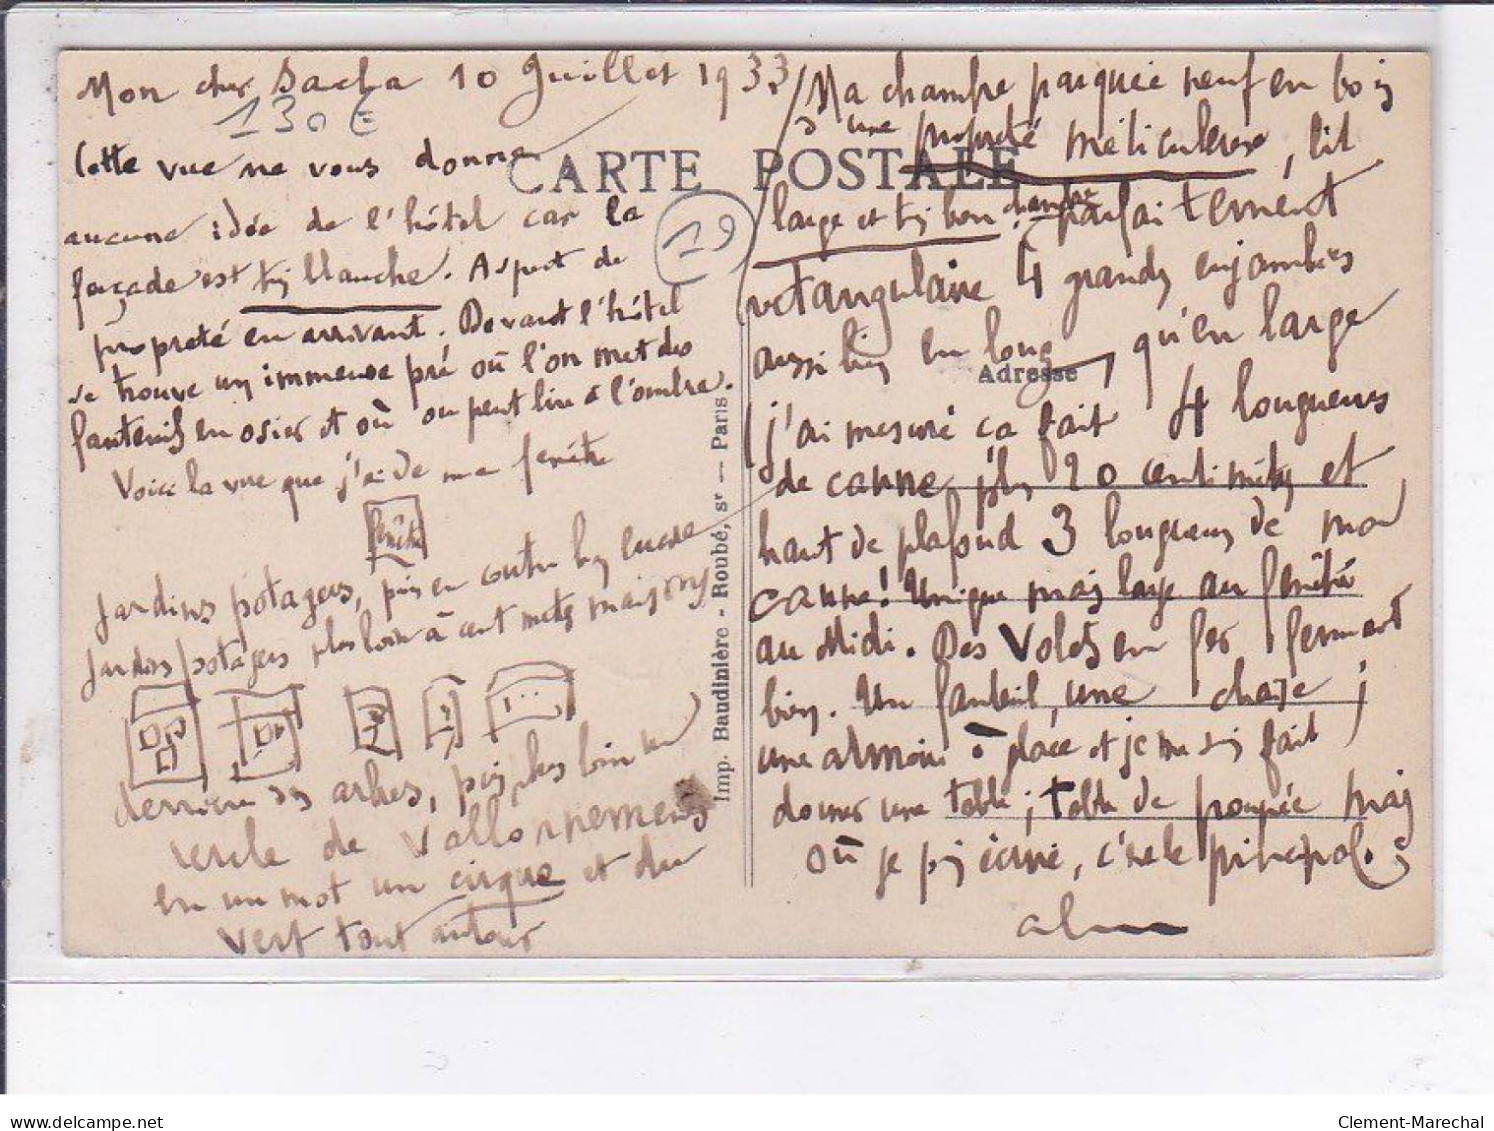 Mon cher Sacha 10 Juillet 1933
130 €
Cette vue ne vous donne
CARTE POSTALE
aucune idée de l'hôtel car la
19
façade est très blanche. Aspect de
propreté en arrivant. Devant l'hôtel
se trouve un immense pré où l'on met des
fauteuils en osier et où on peut lire à l'ombre.
Voici la vue que j'ai de ma fenêtre
fenêtre
Jardins potagers, puis en contre bas encore
Jardins potagers plus loin à cent mètres maisons
derrière des arbres, puis plus loin un
cercle de vallonnements
en un mot un cirque et du
vert tout autour
Imp. Baudinière - Roubé, sr — Paris
Ma chambre parquée neuf en bois
d'une propreté méticuleuse, lit
large et très bon, chambre parfaitement
rectangulaire 4 grandes enjambées
aussi bien en long, qu'en large
Adresse
j'ai mesuré ça fait 4 longueurs
de canne plus 20 centimètres et
haut de plafond 3 longueurs de ma
canne! Unique mais large fenêtre
au Midi. Des Volets en fer fermant
bien. Un fauteuil, une chaise,
une armoire à glace et je me suis fait
donner une table; table de poupée mais
où je puis écrire, c'est le principal.